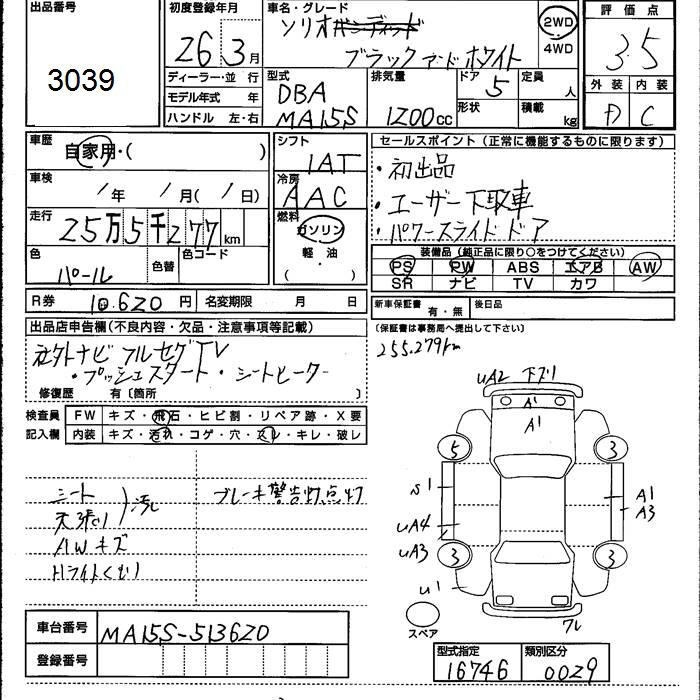 出品番号
3039
初度登録年月
26 3月
車名・グレード
ソリオ
ブラック アンド ホワイト
2WD
4WD
評価点
3.5
外装 内装
D C
ディーラー・並行
モデル年式 年
ハンドル 左・右
型式
DBA
MA15S
排気量
1200cc
ドア
5
形状
定員
人
積載
kg
車歴
自家用・( )
シフト
IAT
車検
/年 /月(/日)
冷房
AAC
走行
25万5千277km
燃料
ガソリン
軽油
( )
色
パール
色替
色コード
R券
10,620円
名変期限 月 日
セールスポイント(正常に機能するものに限ります)
・初出品
・エーザー下取車
・パワースライドドア
装備品(純正品に限り○をつけてください)
PS PW ABS エアB AW
SR ナビ TV カワ
新車保証書
有・無
後日品
(保証書は事務局へ提出して下さい)
255.279km
出品店申告欄(不良内容・欠品・注意事項等記載)
社外ナビ フルセグTV
・プッシュスタート・シートヒーター
修復歴 有〔箇所 〕
検査員
記入欄
FW キズ・飛石・ヒビ割・リペア跡・X要
内装 キズ・汚れ・コゲ・穴・スレ・キレ・破レ
シート
天張り
汚れ
AWキズ
Hライトくもり
ブレーキ警告灯点灯
UA2 下ズリ
A1
A1
5
3
S1
A1
A3
UA4
UA3
3
3
U1
スペア
フレ
車台番号
MA15S-513620
登録番号
型式指定
16746
類別区分
0029